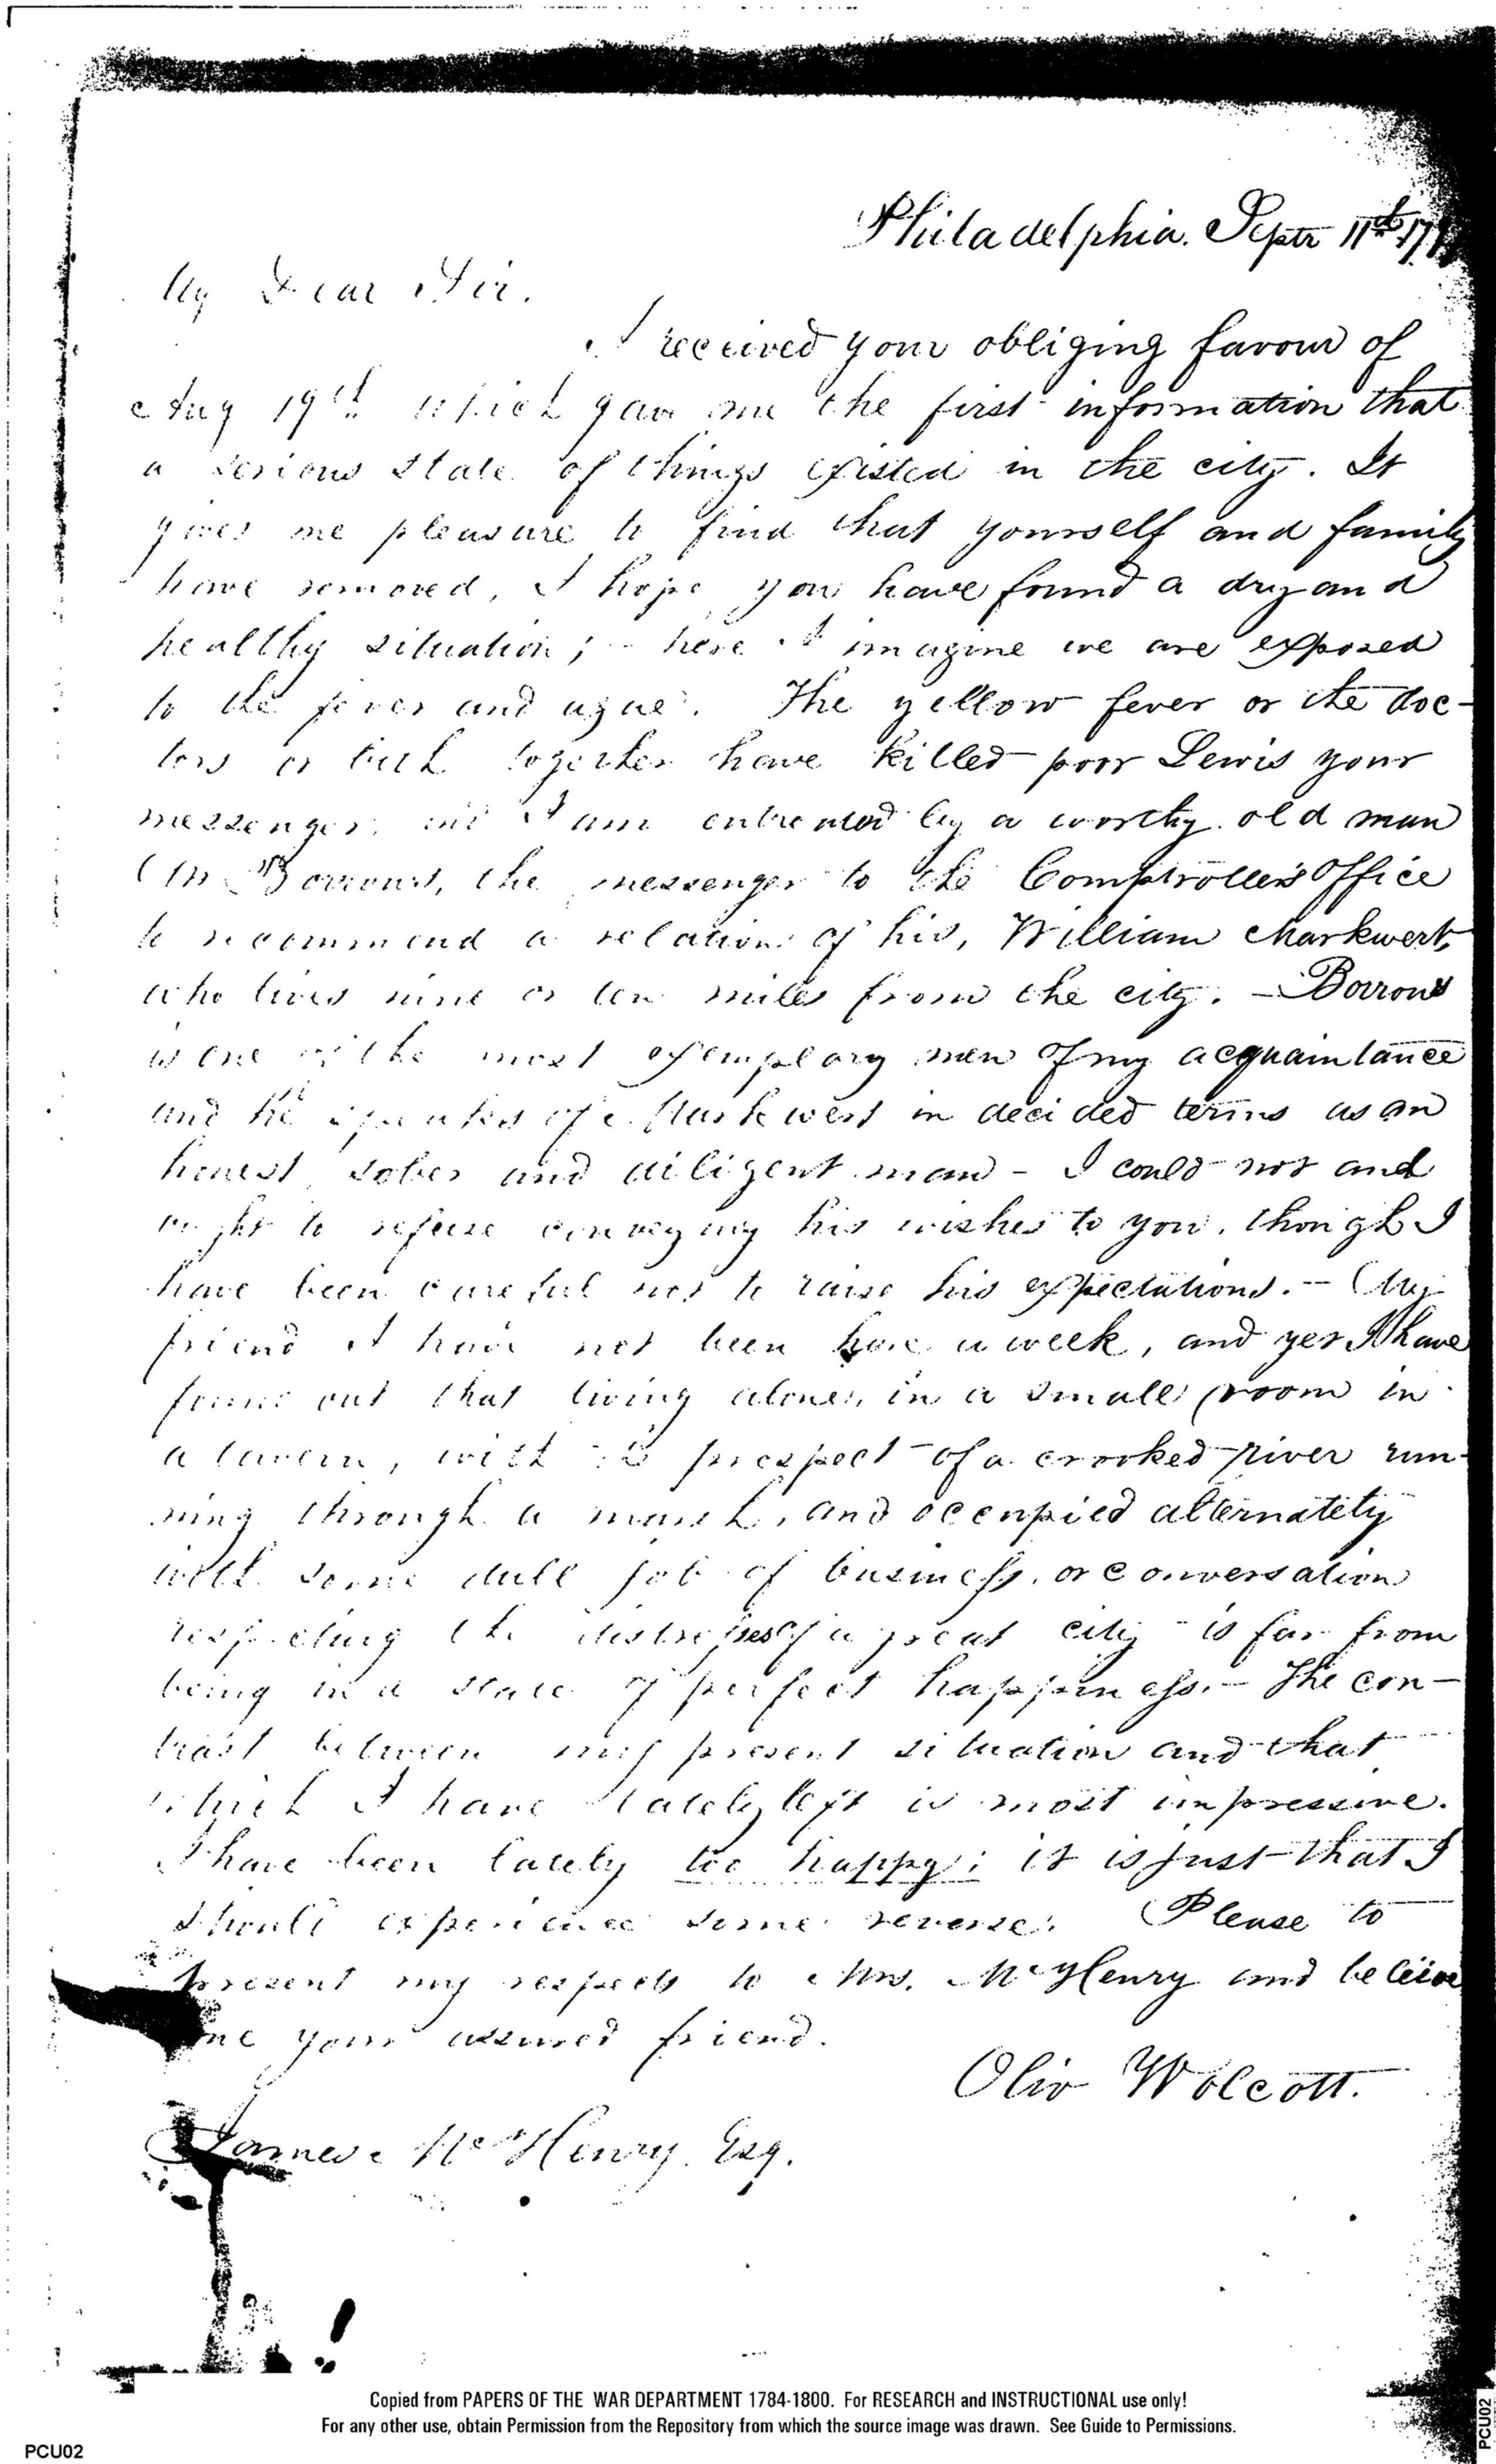 Philadelphia. Septr 11th 17
My Dear Sir.
I received your obliging favour of
Aug 19th which gave me the first information that
a serious state of things existed in the city. It
gives me pleasure to find that yourself and family
have removed, I hope you have found a dry and
healthy situation; - here I imagine we are exposed
to the fever and ague. The yellow fever or the doc-
tors or both together have killed poor Lewis your
messenger, and I am entreated by a worthy old man
Mr Borrows, the messenger to the Comptroller's Office
to recommend a relation of his, William Markwert,
who lives nine or ten miles from the city. - Borrows
is one of the most exemplary men of my acquaintance
and he speaks of Markwert in decided terms as an
honest sober and diligent man - I could not and
ought to refuse conveying his wishes to you, though I
have been careful not to raise his expectations. - My
friend I have not been here a week, and yet I have
found out that living alone, in a small room in
a tavern, with the prospect of a crooked river run-
ning through a marsh, and occupied alternately
with some dull job of business, or conversation
respecting the distresses of a great city is far from
being in a state of perfect happiness. - The con-
trast between my present situation and that
which I have lately left is most impressive.
I have been lately too happy; it is just that I
should experience some reverse. Please to
present my respects to Mrs. McHenry and believe
me your assured friend.
Oliv Wolcott.
James McHenry Esq.
Copied from PAPERS OF THE WAR DEPARTMENT 1784-1800. For RESEARCH and INSTRUCTIONAL use only!
For any other use, obtain Permission from the Repository from which the source image was drawn. See Guide to Permissions.
PCU02
PCU02